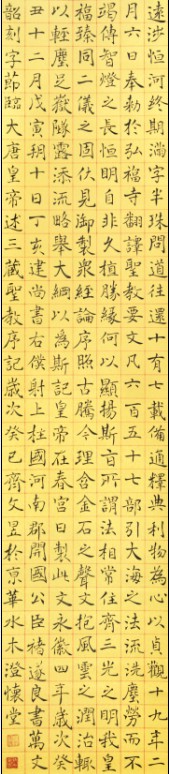 遠涉恒河終期滿字半珠問道往還十有七載備通釋典利物為心以貞觀十九年二
月六日奉勅於弘福寺翻譯聖教要文凡六百五十七部引大海之法流洗塵勞而不
竭傳智燈之長恒明自非久植勝緣何以顯揚斯旨所謂法相常住齊三光之明我皇
福臻同二儀之固伏見御製衆經論序照古騰今理含金石之聲文抱風雲之潤治輒
以輕塵足嶽隊露添流略舉大綱以為斯記皇帝在春宮日製此文永徽四年歲次癸
丑十二月戊寅朔十日丁亥建尚書右僕射上柱國河南郡開國公臣褚遂良書萬文
韶刻字節臨大唐皇帝述三藏聖教序記歲次癸巳齊文昱於京華水木澄懷堂